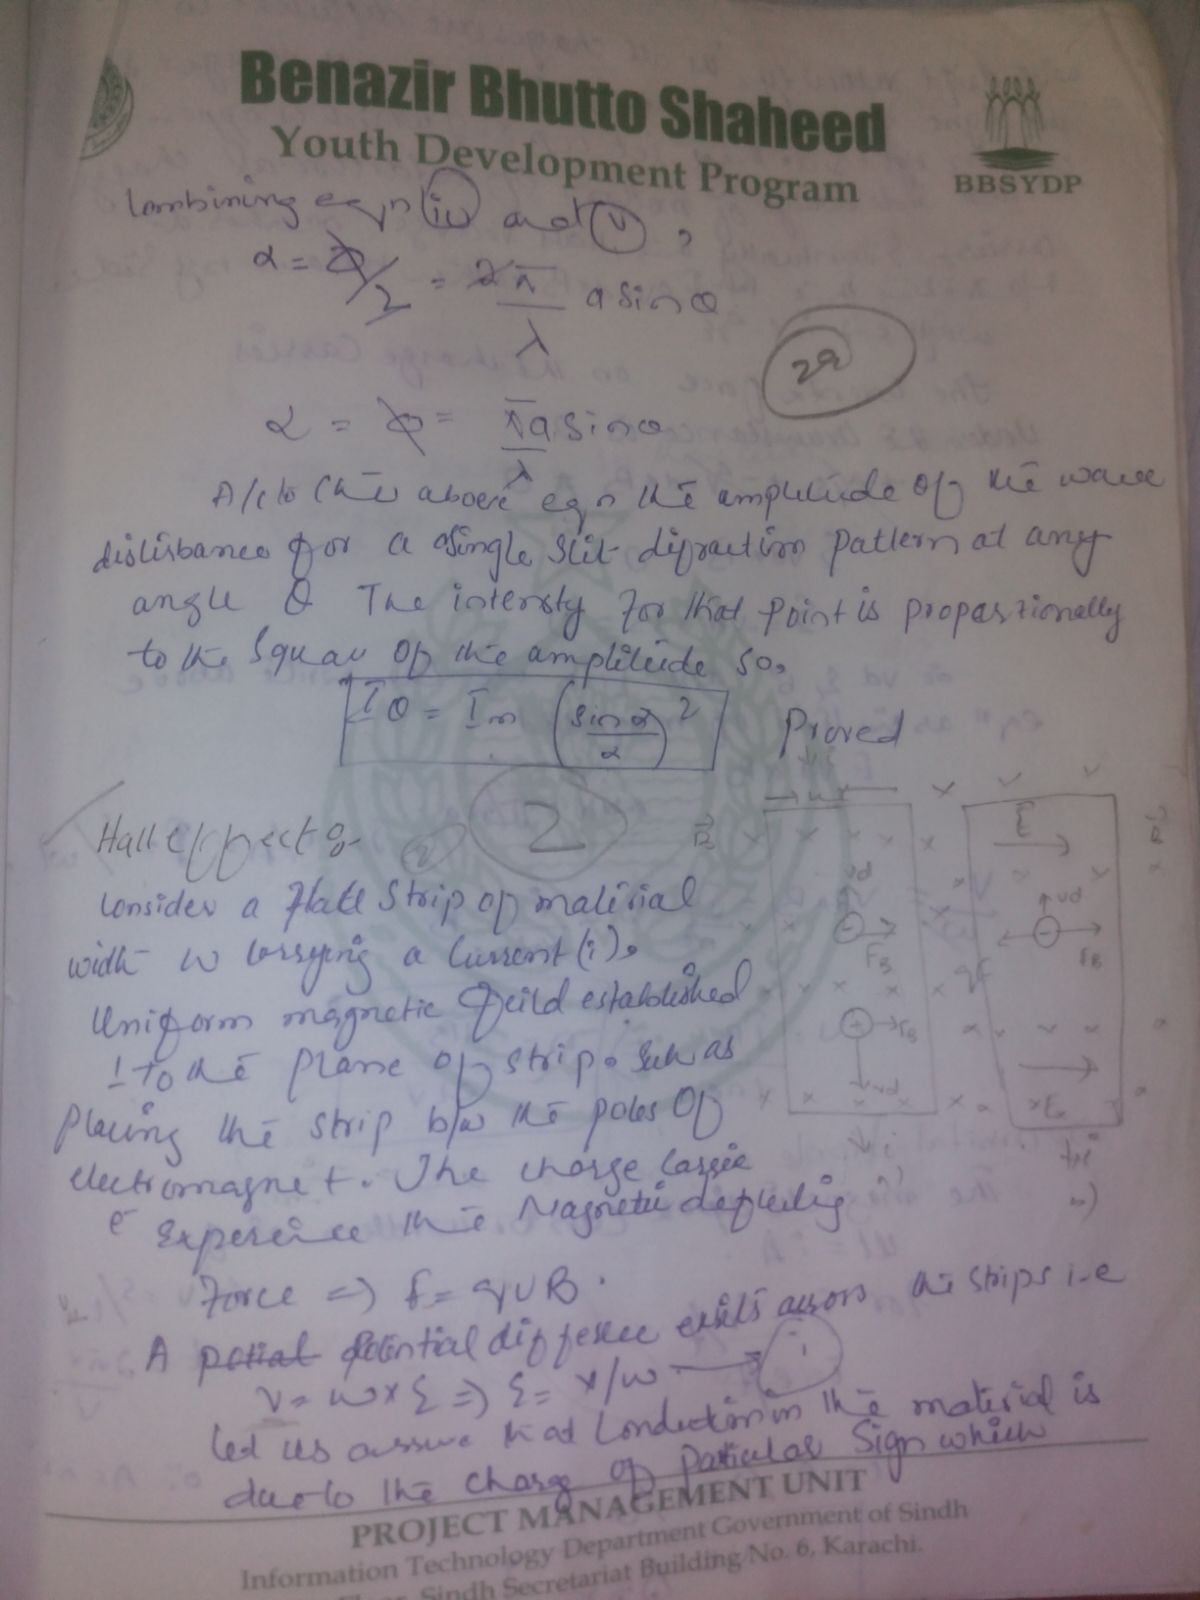 Benazir Bhutto Shaheed
Youth Development Program
BBSYDP
Combining eqn (iv) and (v),
α = ϕ/2 = 2π/λ a sinθ
29
α = ϕ = πa sinθ/λ
A/c to the above eqn the amplitude of the wave
distirbance for a single slit difraction pattern at any
angle θ The intensty for that point is proportionally
to the Squar of the amplitude so,
Iθ = Im (sin α/α)²
Proved
Hall effect :-
2
Consider a flate Strip of material
width w carrying a Current (i).
Uniform magnetic feild established
⊥ to the plane of strip. Such as
placing the strip b/w the poles of
electromagnet. The charge carrie
Experience the Magnetic deflectig
Force => f = qvB.
A potential difference exists across the strips i.e
V = w x ξ => ξ = V/w → i
Let us assume that Conduction in the material is
due to the charg of paticular Sign which
i
B
vd
FB
FB
vd
i
E
vd
FB
PROJECT MANAGEMENT UNIT
Information Technology Department Government of Sindh
Floor, Sindh Secretariat Building No. 6, Karachi.